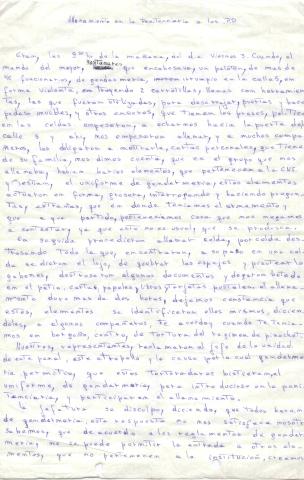 Allanamiento en la Penitenciaria a los P.P.
Eran, las 9 de la mañana, del dia Viernes 3. Cuando, al
mando del mayor, que encabezava, un peloton, de mas de
funcionarios, de gendarmeria, irrumpio en la calle 5, en
forma violenta, en trayendo 2 carretillas, llenas con herramien
tas, las que fueron utilizadas, para descerrajar, puertas, y
muebles, y otros enseres, que tienen los presos, politicos
en las celdas empezaron, a echarnos hacia la puerta de la
calle 5 y ahi, nos empezaron allanar, y a muchos compa
ñeros, los obligaron a mostrarle, cartas personales, que tiene
de su familia, nos dimos cuenta, que en el grupo que nos
allanaba, habian varios elementos, que pertenecen a la CNI
y vestian, el uniforme de gendarmeria, estos elementos
actuaron en forma, grosera, y haciendo pregun
tas, extrañas, que en donde teniamos el armamento,
que a que partido, perteneciamos cosa que nos negamos
a contestar, ya que esto no es usual, que se produzca.
En seguida procedieron allanar celda, por celda des
trosando Todo lo que, encontraron, a su paso en una cel
da se dieron el lujo, de quebrar los espejos, y
destrosaron algunos documentos y dejaron botada
en el patio, cartas, papeles y libros, el allana
miento duro mas de dos horas, dejamos constancia que
estos, elementos se identificaron ellos mismos, dicien
doles, a algunos compañeros te acordas cuando te tenia
mos en borgoño, centro, de tortura del regimen de pinochet.
Nuestros, representantes, reclamaron al jefe de la unidad
de este penal, este atropello, y la causa por la cual gendarme
ria permitia, que estos torturadores bistieran, el
uniforme, de gendarmeria, para introducirse en la peni
tenciaria, y participaran en el allanamiento.
La jefatura se disculpo, diciendo, que todos heran
de gendarmeria, esta respuesta no nos satisface nosotr
sabemos, que de acuerdo a los reglamentos de gendar
meria, no se puede permitir la entrada a otros ele
mentos, que no pertenecen a la institucion, creemos